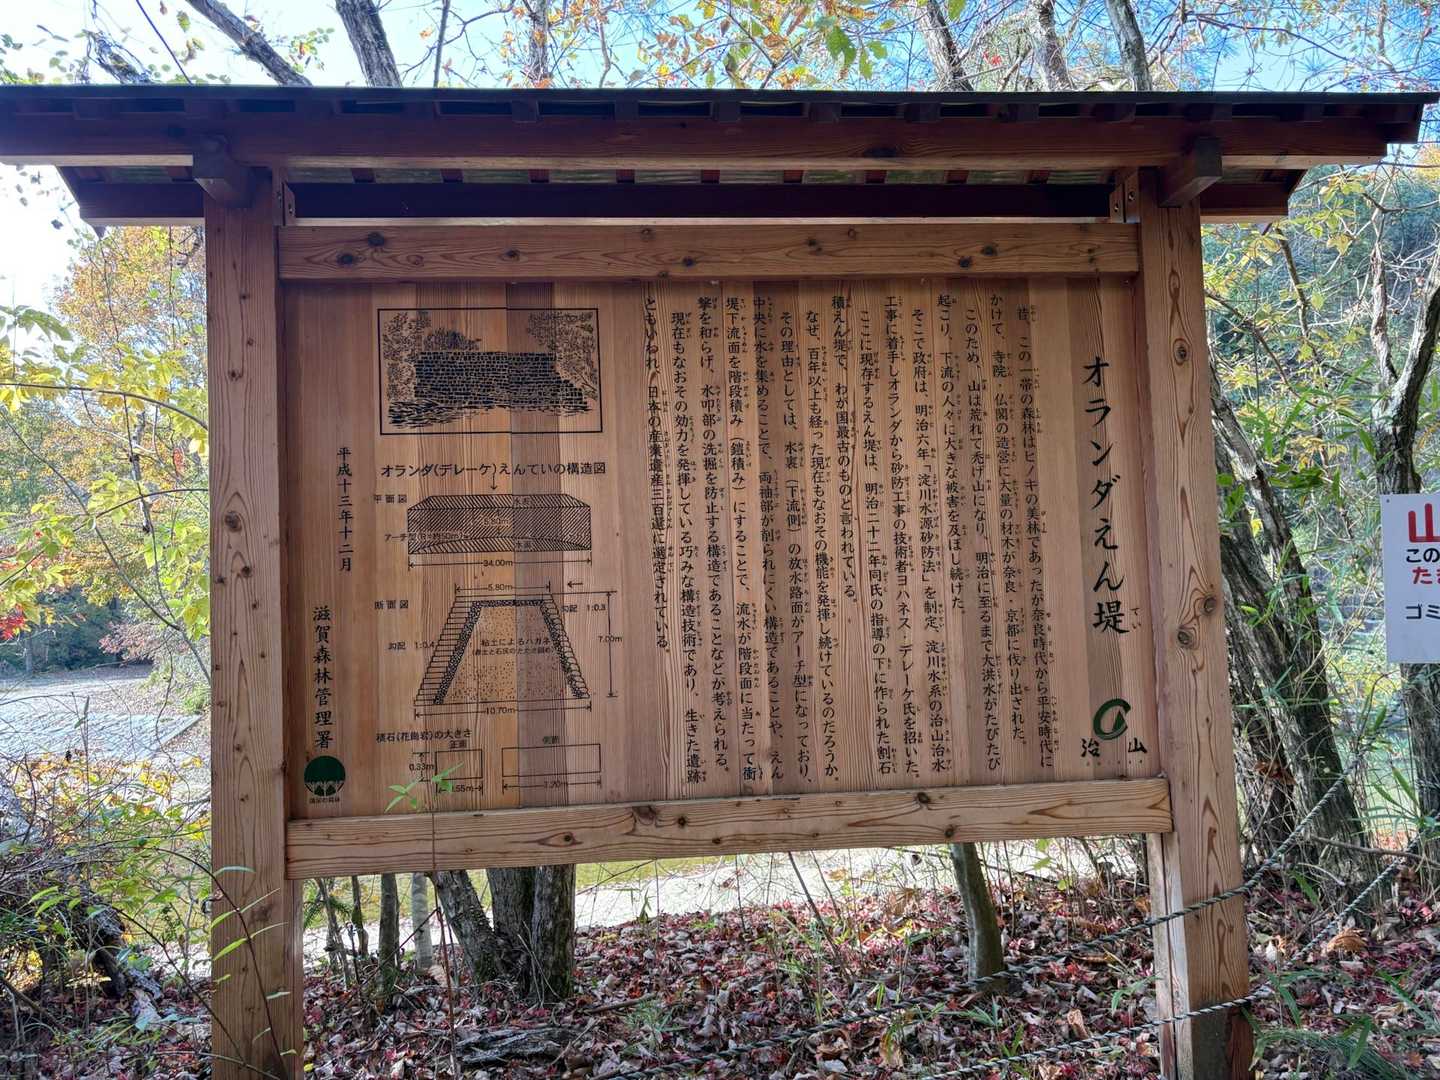 オランダえん堤
てい
治山
昔、この一帯の森林はヒノキの美林であったが奈良時代から平安時代に
かけて、寺院・仏閣の造営に大量の材木が奈良・京都に伐り出された。
このため、山は荒れて禿げ山になり、明治に至るまで大洪水がたびたび
起こり、下流の人々に大きな被害を及ぼし続けた。
そこで政府は、明治六年「淀川水源砂防法」を制定、淀川水系の治山治水
工事に着手しオランダから砂防工事の技術者ヨハネス・デレーケ氏を招いた。
ここに現存するえん堤は、明治二十二年同氏の指導の下に作られた割石
積えん堤で、わが国最古のものと言われている。
なぜ、百年以上も経った現在もなおその機能を発揮し続けているのだろうか。
その理由としては、水裏（下流側）の放水路面がアーチ型になっており、
中央に水を集めることで、両袖部が削られにくい構造であることや、えん
堤下流面を階段積み（鎧積み）にすることで、流水が階段面に当たって衝
撃を和らげ、水叩部の洗掘を防止する構造であることなどが考えられる。
現在もなおその効力を発揮している巧みな構造技術であり、生きた遺跡
ともいわれ、日本の産業遺産三百選に選定されている。
オランダ(デレーケ)えんていの構造図
平面図
水表
5.80m
アーチ型(R=約50m)
水裏
34.00m
断面図
5.80m
勾配 1:0.3
勾配 1:0.4
7.00m
粘土によるハガネ
10.70m
積石(花崗岩)の大きさ
正面
0.33m
0.55m
側面
1.20m
平成十三年十二月
滋賀森林管理署
山
この
ゴミ